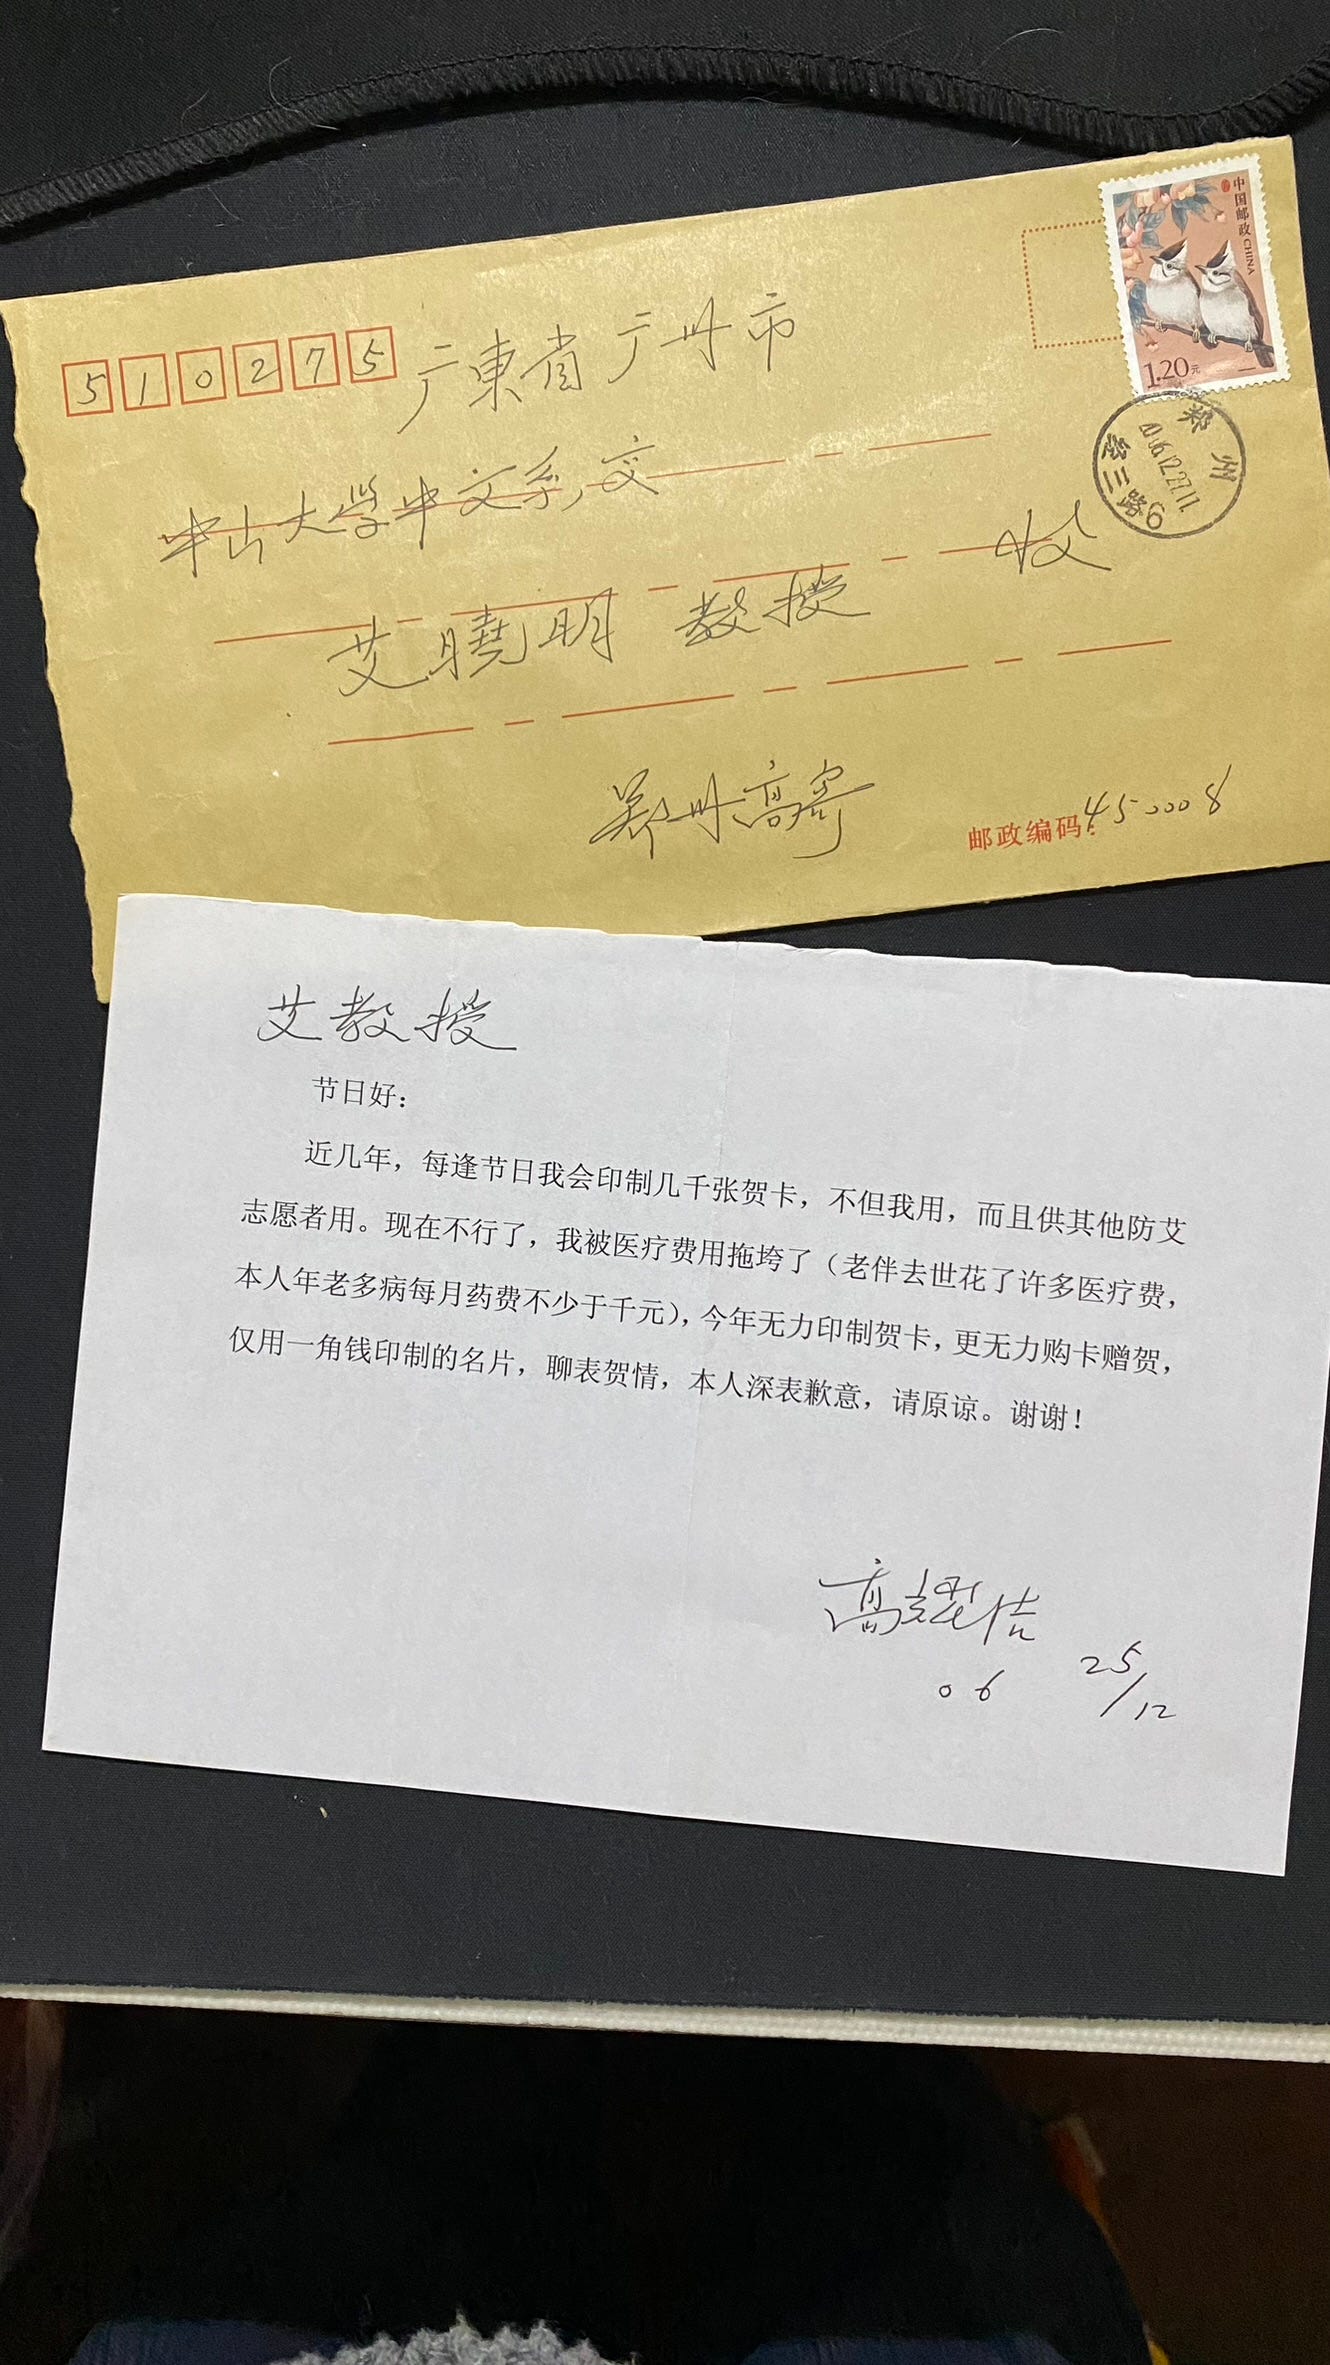 中国邮政 CHINA
1.20元
郑州
2006.12.27.11
路6
510275 广東省广州市
中山大学中文系,交
艾曉明 教授 收
郑州高寄
邮政编码:450008
艾教授
节日好:
近几年，每逢节日我会印制几千张贺卡，不但我用，而且供其他防艾
志愿者用。现在不行了，我被医疗费用拖垮了（老伴去世花了许多医疗费，
本人年老多病每月药费不少于千元），今年无力印制贺卡，更无力购卡赠贺，
仅用一角钱印制的名片，聊表贺情，本人深表歉意，请原谅。谢谢！
高耀洁
06 25/12